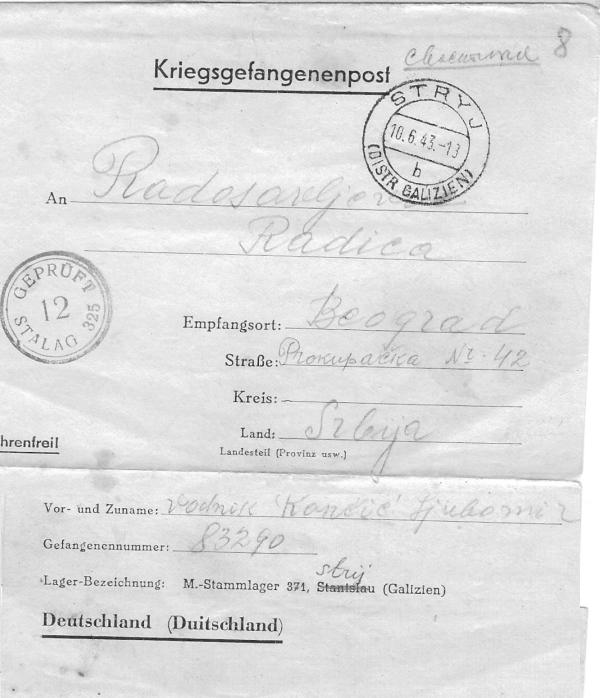 8
Kriegsgefangenenpost
STRYJ
10.6.43.-13
b
(DISTR. GALIZIEN)
An Radosavljević
Radica
GEPRÜFT
12
STALAG 325
Empfangsort: Beograd
Straße: Prokupačka Nr. 42
Kreis:
Land: Srbija
Landesteil (Provinz usw.)
hrenfrei!
Vor- und Zuname: vodnik Končić Ljubomir
Gefangenennummer: 83290
strij
Lager-Bezeichnung: M.-Stammlager 371, Stanislau (Galizien)
Deutschland (Duitschland)